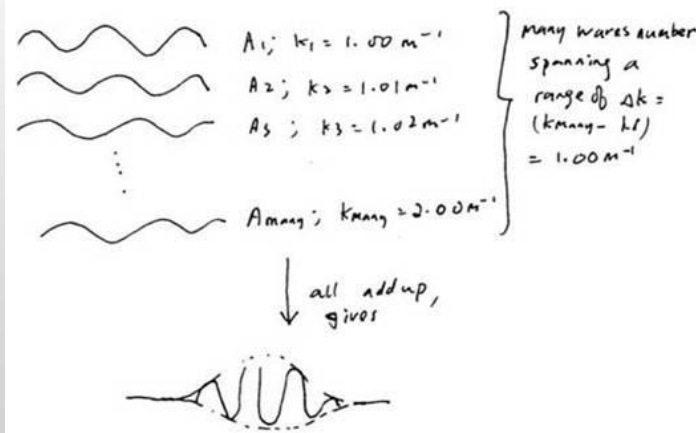 A1; k1 = 1.00 m⁻¹
A2; k2 = 1.01 m⁻¹
A3; k3 = 1.02 m⁻¹
Amany; kmany = 2.00 m⁻¹
many waves number
spanning a
range of Δk =
(kmany -
= 1.00 m⁻¹
all add up,
gives